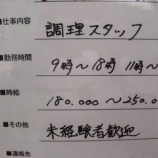 ■仕事内容
調理スタッフ
■勤務時間
9時〜18時 11時〜
■時給
180.000〜250.0
■その他
未経験者歓迎
■連絡先